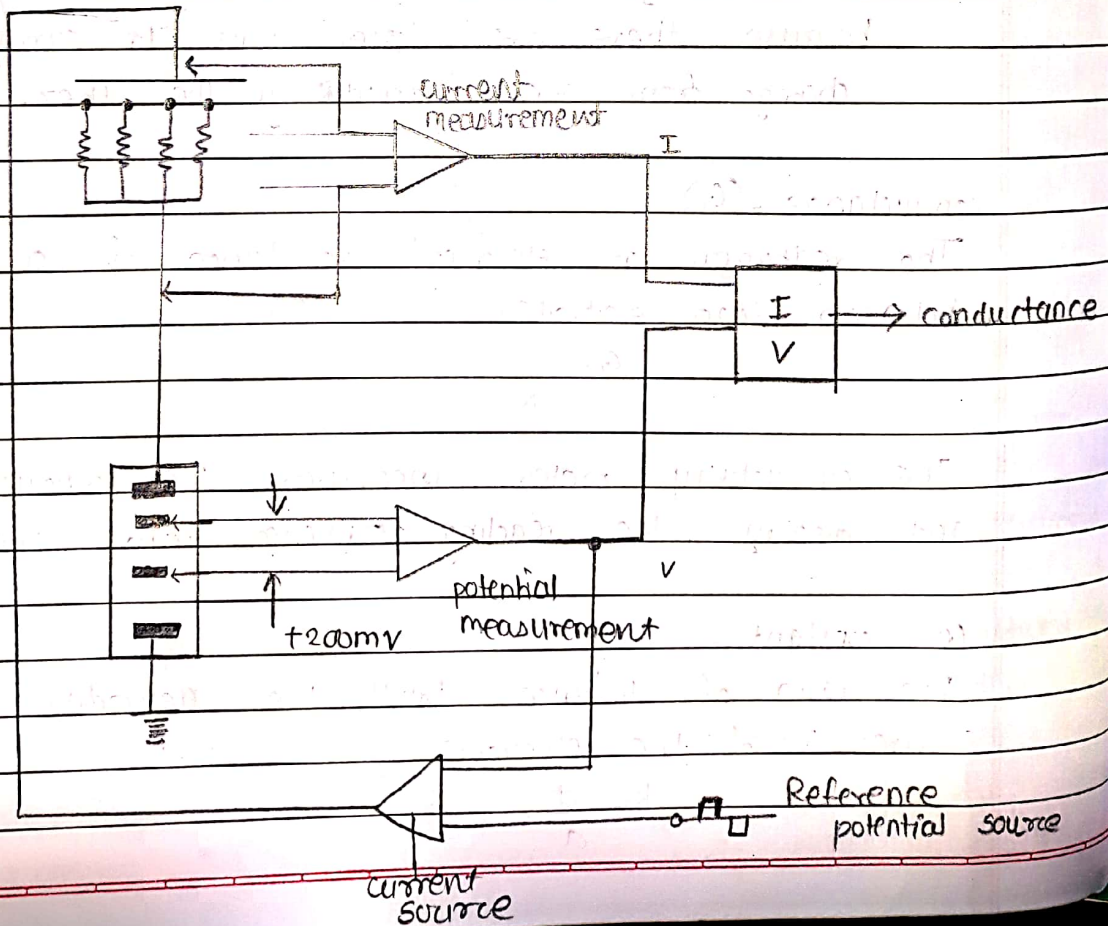 current
measurement
I
I
V
conductance
V
potential
measurement
+200mV
Reference
potential source
current
source